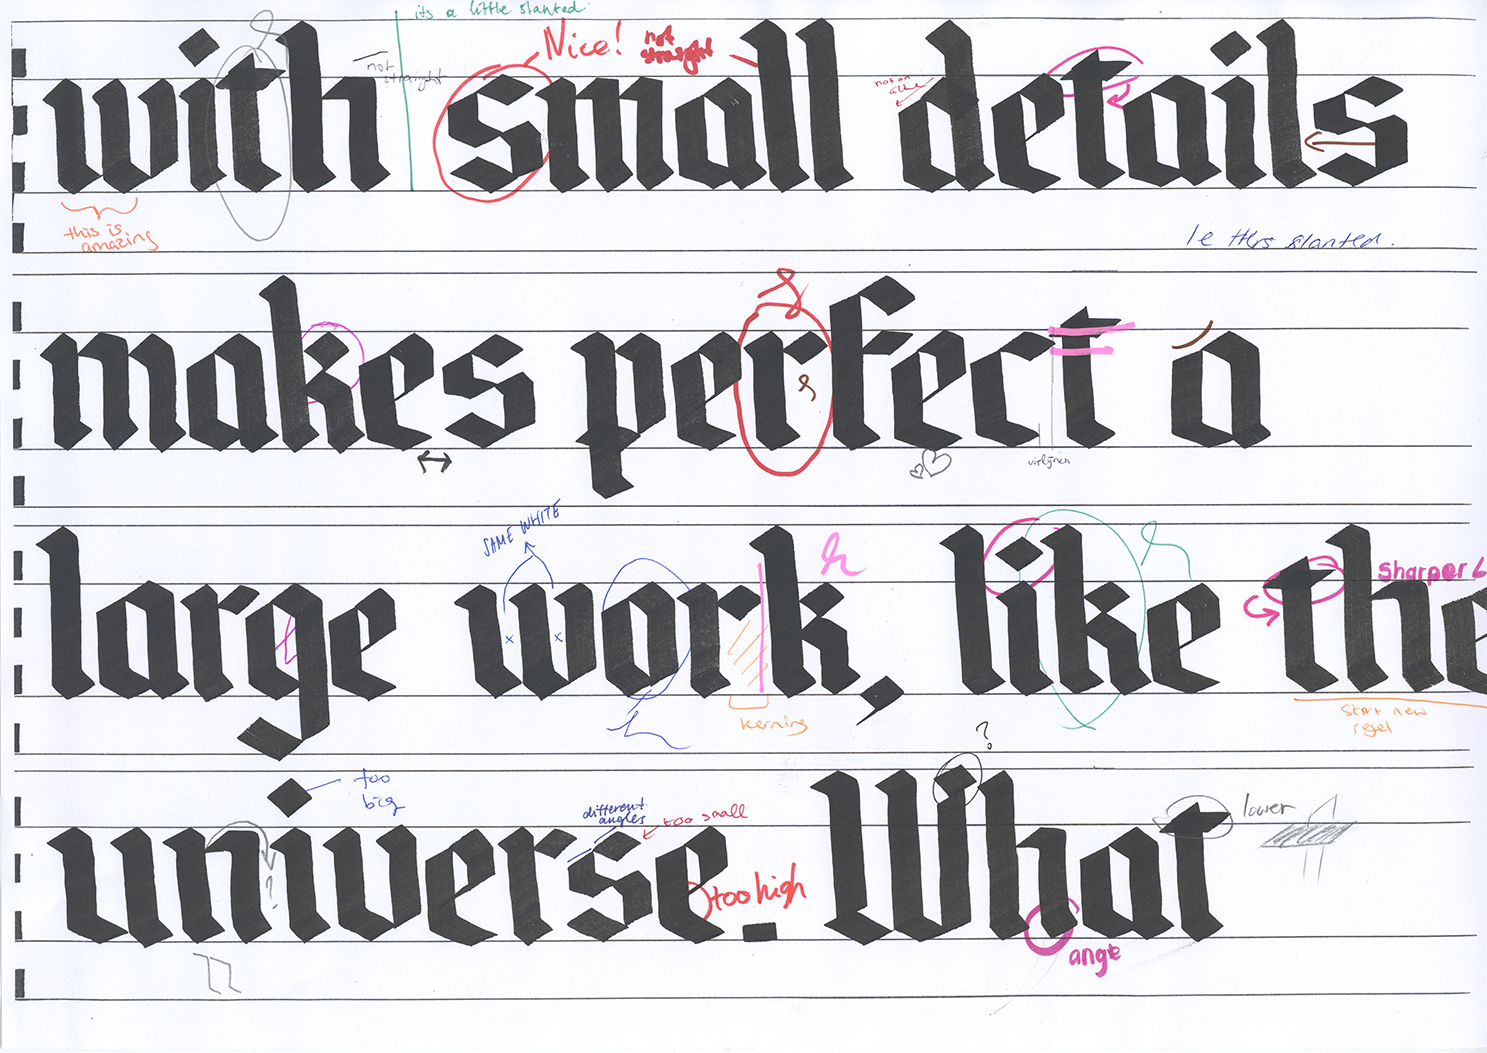 its a little slanted
Nice!
not straight
not straight
with small details
this is amazing
letters slanted.
makes perfect a
uitlijnen
SAME WHITE
large work, like the
Sharper
kerning
start new regel
?
too big
different angles
too small
lower
universe. What
?
too high
angle